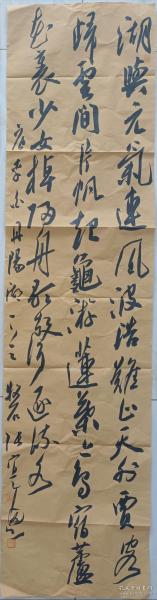 湖与元气连风波浩难止天外贾客
归云间片帆起龟游莲叶上鸟宿芦
花里少女棹归舟歌声逐流水
李白丹阳湖